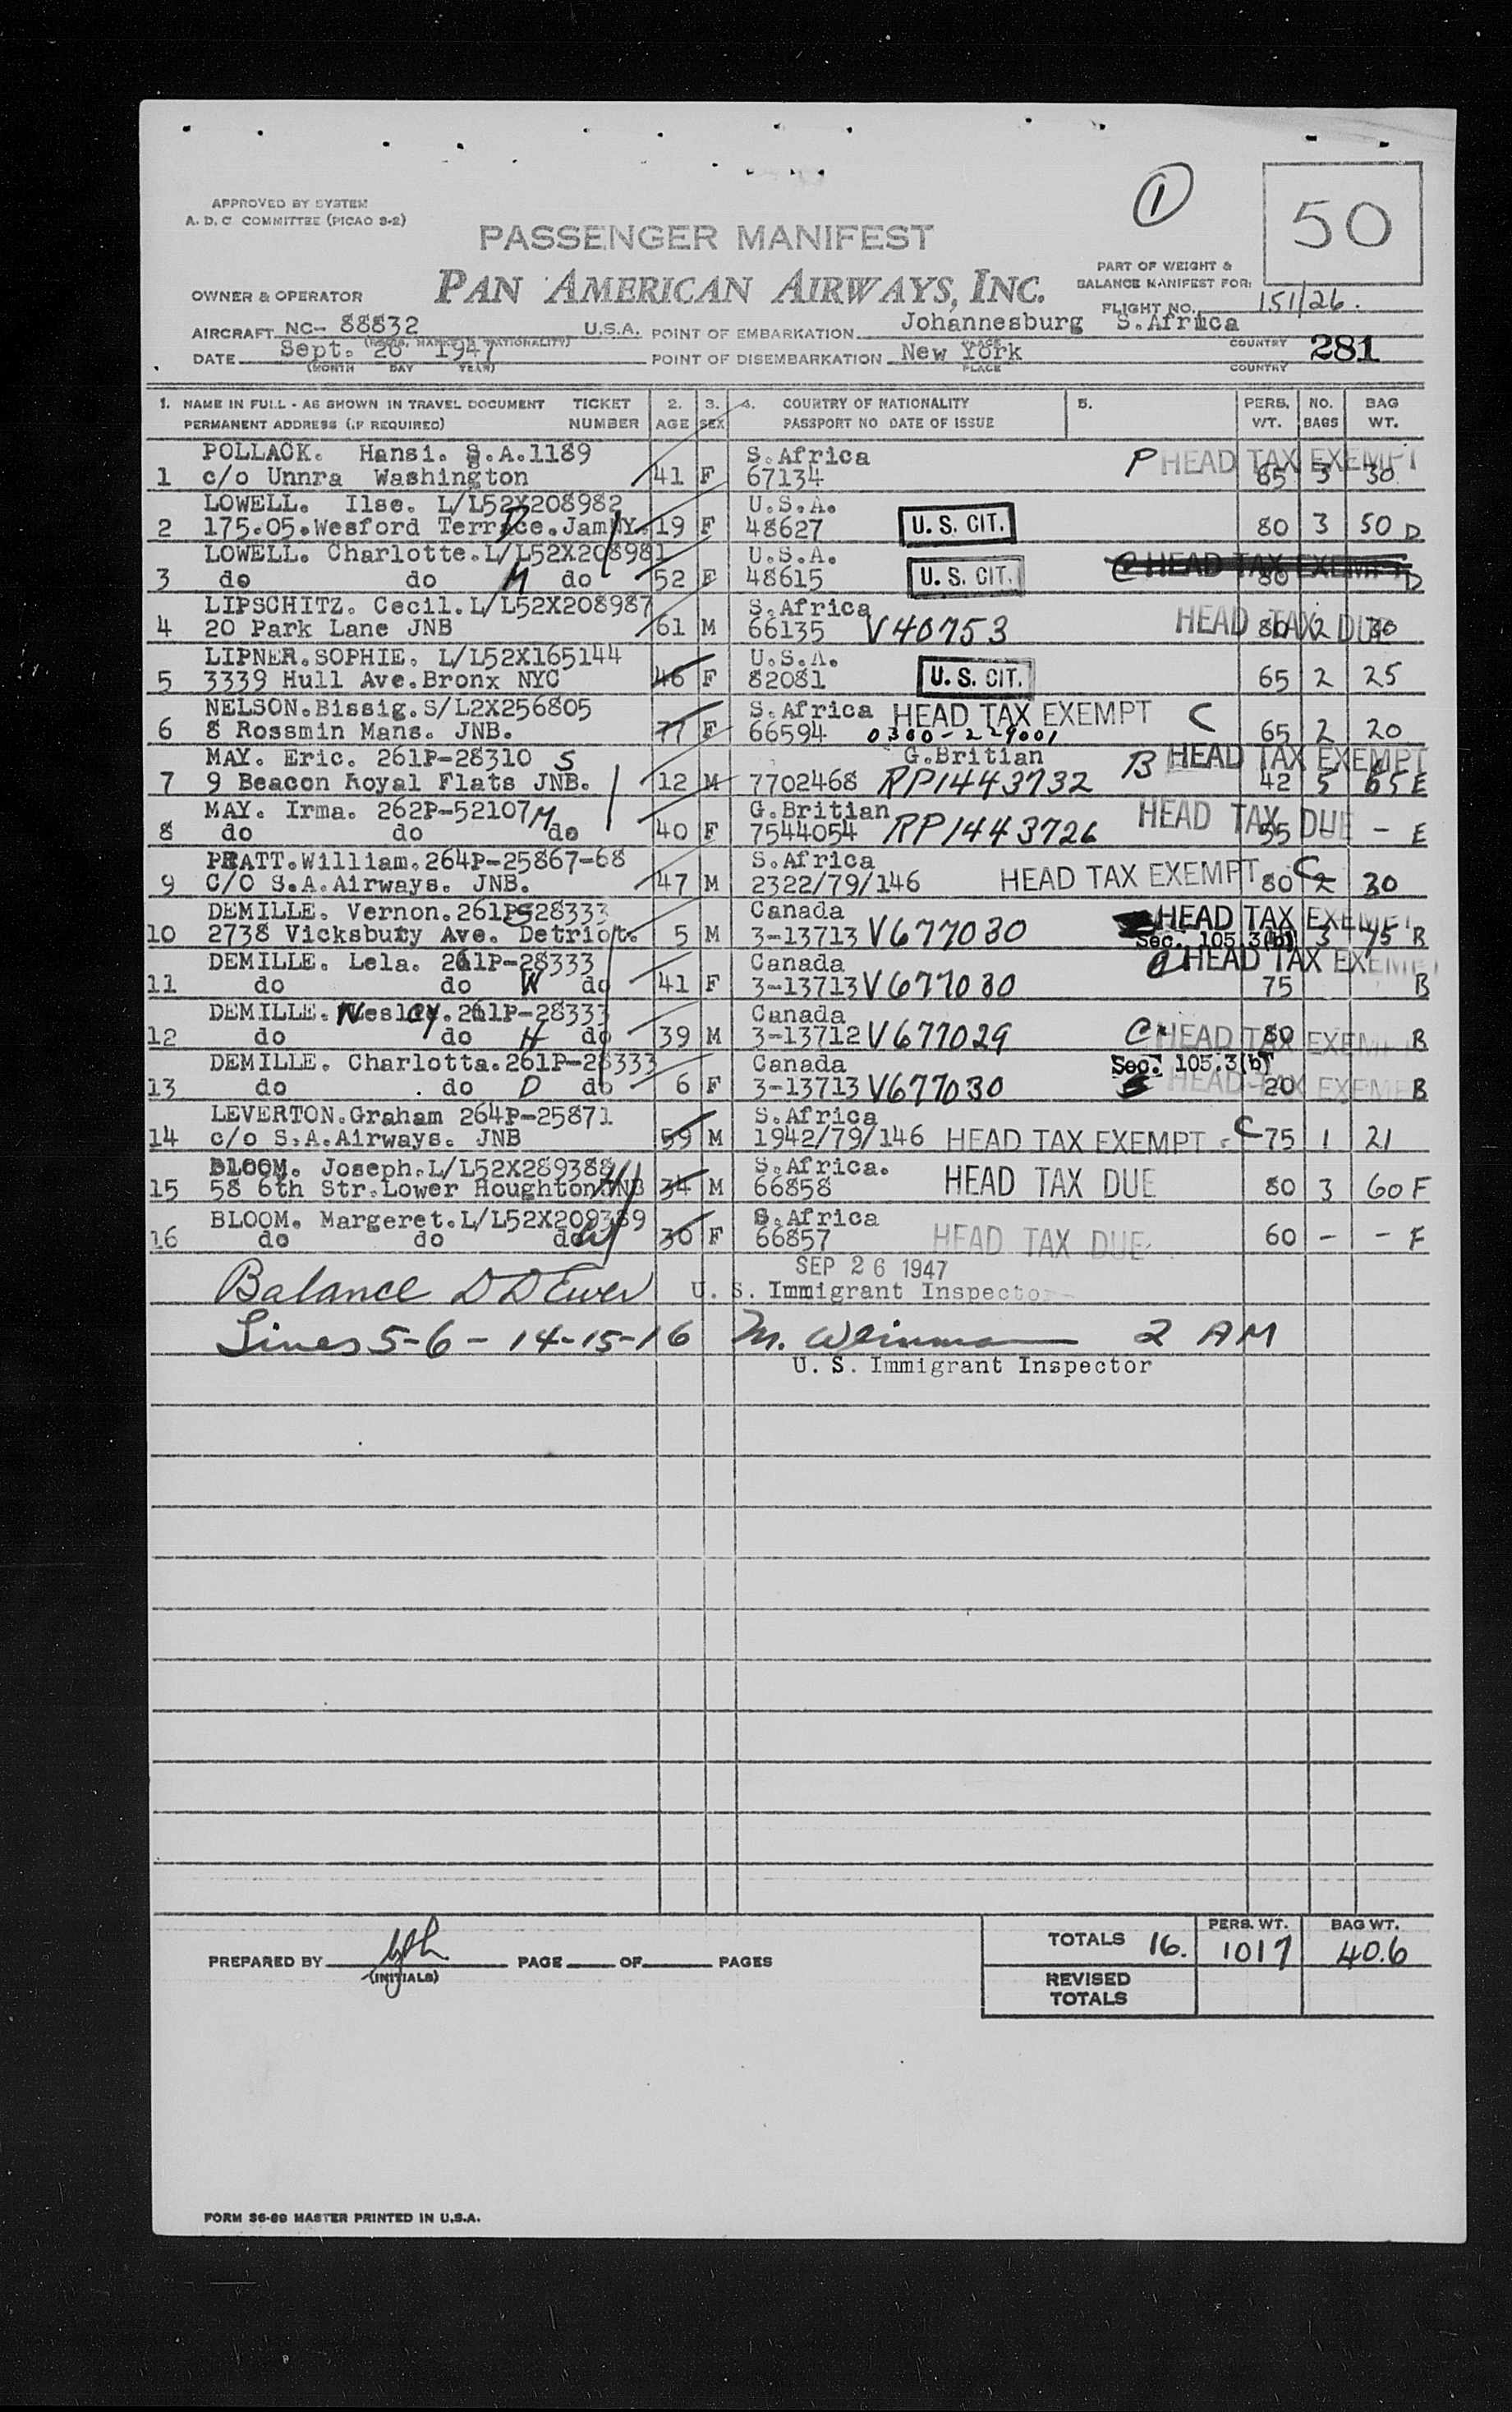 APPROVED BY SYSTEM
A. D. C COMMITTEE (PICAO S-2)
1
50
PASSENGER MANIFEST
PAN AMERICAN AIRWAYS, INC.
PART OF WEIGHT &
BALANCE MANIFEST FOR:
OWNER & OPERATOR
FLIGHT NO. 151/26.
AIRCRAFT NC- 88832 U.S.A. POINT OF EMBARKATION Johannesburg S.Africa
DATE Sept. 26 1947 POINT OF DISEMBARKATION New York 281
(MONTH DAY YEAR) PLACE COUNTRY
1. NAME IN FULL - AS SHOWN IN TRAVEL DOCUMENT TICKET 2. 3. 4. COUNTRY OF NATIONALITY 5. PERS. NO. BAG
PERMANENT ADDRESS (IF REQUIRED) NUMBER AGE SEX PASSPORT NO DATE OF ISSUE WT. BAGS WT.
POLLACK. Hansi. S.A.1189 S.Africa P HEAD TAX EXEMPT
1 c/o Unnra Washington 41 F 67134 65 3 30
LOWELL. Ilse. L/L52X208982 U.S.A.
2 175.05.Wesford Terrace.Jam.NY. D 19 F 48627 U. S. CIT. 80 3 50 D
LOWELL. Charlotte.L/L52X208981 U.S.A. HEAD TAX EXEMPT
3 do do M do 52 F 48615 U. S. CIT. 80 D
LIPSCHITZ. Cecil.L/L52X208987 S.Africa HEAD TAX DUE
4 20 Park Lane JNB 61 M 66135 V40753 80 2 30
LIPNER.SOPHIE. L/L52X165144 U.S.A.
5 3339 Hull Ave.Bronx NYC 46 F 82081 U. S. CIT. 65 2 25
NELSON.Bissig.S/L2X256805 S.Africa HEAD TAX EXEMPT C
6 8 Rossmin Mans. JNB. 77 F 66594 0300-229001 65 2 20
MAY. Eric. 261P-28310 S G.Britian B HEAD TAX EXEMPT
7 9 Beacon Royal Flats JNB. 12 M 7702468 RP1443732 42 5 65 E
MAY. Irma. 262P-52107 M G.Britian HEAD TAX DUE
8 do do do 40 F 7544054 RP1443726 55 - - E
PRATT.William.264P-25867-68 S.Africa
9 C/O S.A.Airways. JNB. 47 M 2322/79/146 HEAD TAX EXEMPT C 80 2 30
DEMILLE. Vernon.261P-28333 S Canada HEAD TAX EXEMPT
10 2738 Vicksbury Ave. Detriot. 5 M 3-13713 V677030 Sec. 105.3(b) 3 75 B
DEMILLE. Lela. 261P-28333 Canada C HEAD TAX EXEMPT
11 do do W do 41 F 3-13713 V677030 75 B
DEMILLE. Wesley. 261P-28333 Canada
12 do do H do 39 M 3-13712 V677029 C HEAD TAX EXEMPT 80 B
DEMILLE. Charlotta.261P-28333 Canada Sec. 105.3(b)
13 do do D do 6 F 3-13713 V677030 HEAD TAX EXEMPT 20 B
LEVERTON.Graham 264P-25871 S.Africa
14 c/o S.A.Airways. JNB 59 M 1942/79/146 HEAD TAX EXEMPT - C 75 1 21
BLOOM. Joseph.L/L52X289388 S.Africa.
15 58 6th Str.Lower Houghton JNB H 34 M 66858 HEAD TAX DUE 80 3 60 F
BLOOM. Margeret.L/L52X209389 S.Africa
16 do do do W 30 F 66857 HEAD TAX DUE 60 - - F
SEP 26 1947
Balance D D Ewer U. S. Immigrant Inspector
Lines 5-6-14-15-16 M. Weinman 2 AM
U. S. Immigrant Inspector
PREPARED BY (INITIALS) PAGE OF PAGES
PERS. WT. BAG WT.
TOTALS 16. 1017 406
REVISED
TOTALS
FORM 36-89 MASTER PRINTED IN U.S.A.